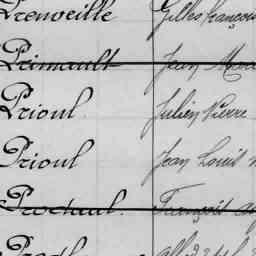 Prenveille Gilles françois
Primault Jean
Prioul Julien Pierre
Prioul Jean Louis
Prodault. François